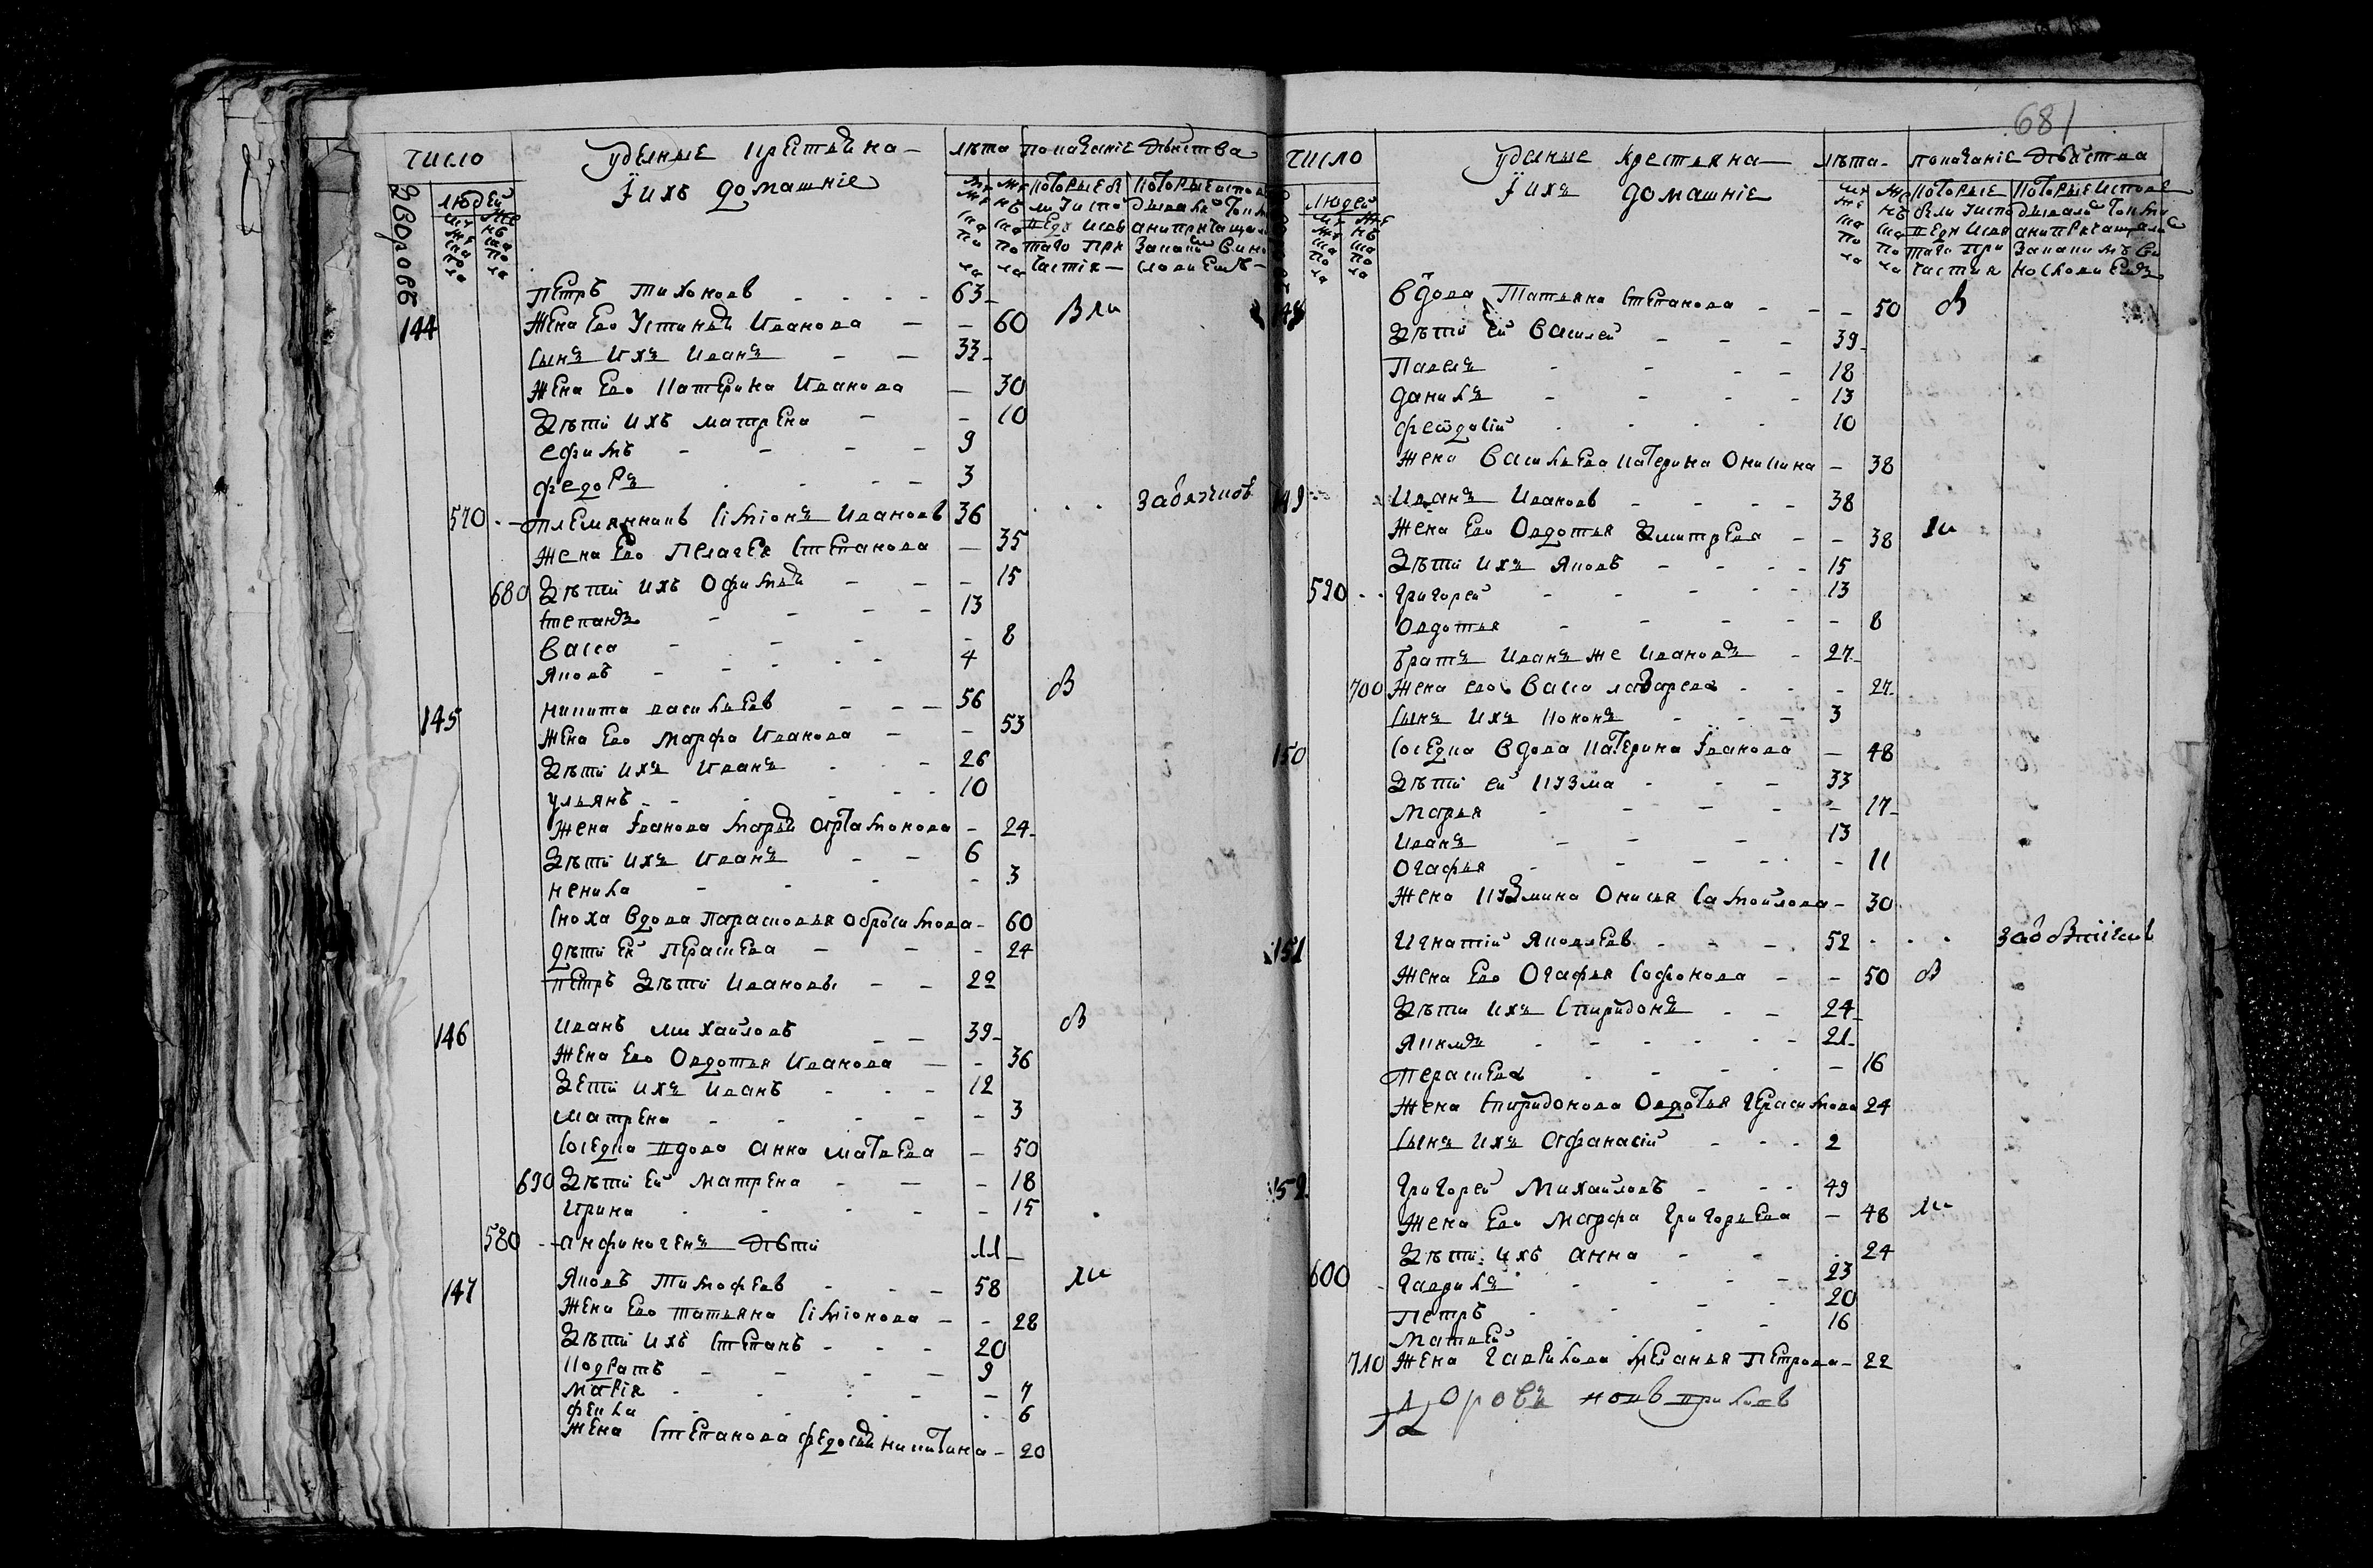 число Удельные крестьяна лѣта показаніе дѣйства
дворовъ людей и ихъ домашніе
петръ тихоновъ 63
144 жена Ево Устинья Иванова 60
сынъ ихъ иванъ 33
жена Ево катерина Иванова 30
дѣти ихъ матрена 10
ефимъ 9
федоръ 3
570 племянникъ симіонъ Ивановъ 36
жена Ево пелагея степанова 35
680 дѣти ихъ Офимья 15
степанъ 13
васса 8
яковъ 4
145 никита васильевъ 56 в
жена Ево марфа Иванова 53
дѣти ихъ иванъ 26
ульянъ 10
жена иванова марья Артамонова 24
дѣти ихъ иванъ 6
ненила 3
сноха вдова парасковья Обросимова 60
дѣти Ея перасева 24
петръ дѣти Ивановы 22
146 иванъ михайловъ 39 в
жена Ево Овдотья Иванова 36
дети ихъ иванъ 12
матрена 3
соседка вдова анна матвева 50
690 дѣти Ей матрена 18
ирина 15
580 анфиногенъ дѣти 11
147 яковъ тимофеевъ 58
жена Ево татьяна симіонова 28
дѣти ихъ степанъ 20
кодратъ 9
марія 7
фекла 6
жена степанова федосья никитина 20
681
число Удельные крестьяна лѣта показаніе дѣйства
людей и ихъ домашніе
148 вдова Татьяна степанова 50 в
дѣти ей василей 39
павелъ 18
данила 13
феодосій 10
жена васильева катерина Оникина 38
149 иванъ Ивановъ 38
жена Ево Овдотья дмитрева 38
дѣти ихъ яковъ 15
590 григорей 13
Овдотья 8
братъ иванъ же ивановъ 27
700 жена ево васса лазарева 27
сынъ ихъ кононъ 3
150 соседка вдова катерина иванова 48
дѣти ей кузма 33
марья 17
иванъ 13
Огафья 11
жена кузмина Онисья самойлова 30
151 игнатій яковлевъ 52
жена Ево Огафья софонова 50 в
дѣти ихъ спиридонъ 24
якимъ 21
перасева 16
жена спиридонова Овдотья герасимова 24
сынъ ихъ афанасій 2
152 григорей михайловъ 49
жена Ево марфа григорьева 48
дѣти ихъ анна 24
600 гаврила 23
петръ 20
матвей 16
710 жена гаврилова меланья петрова 22